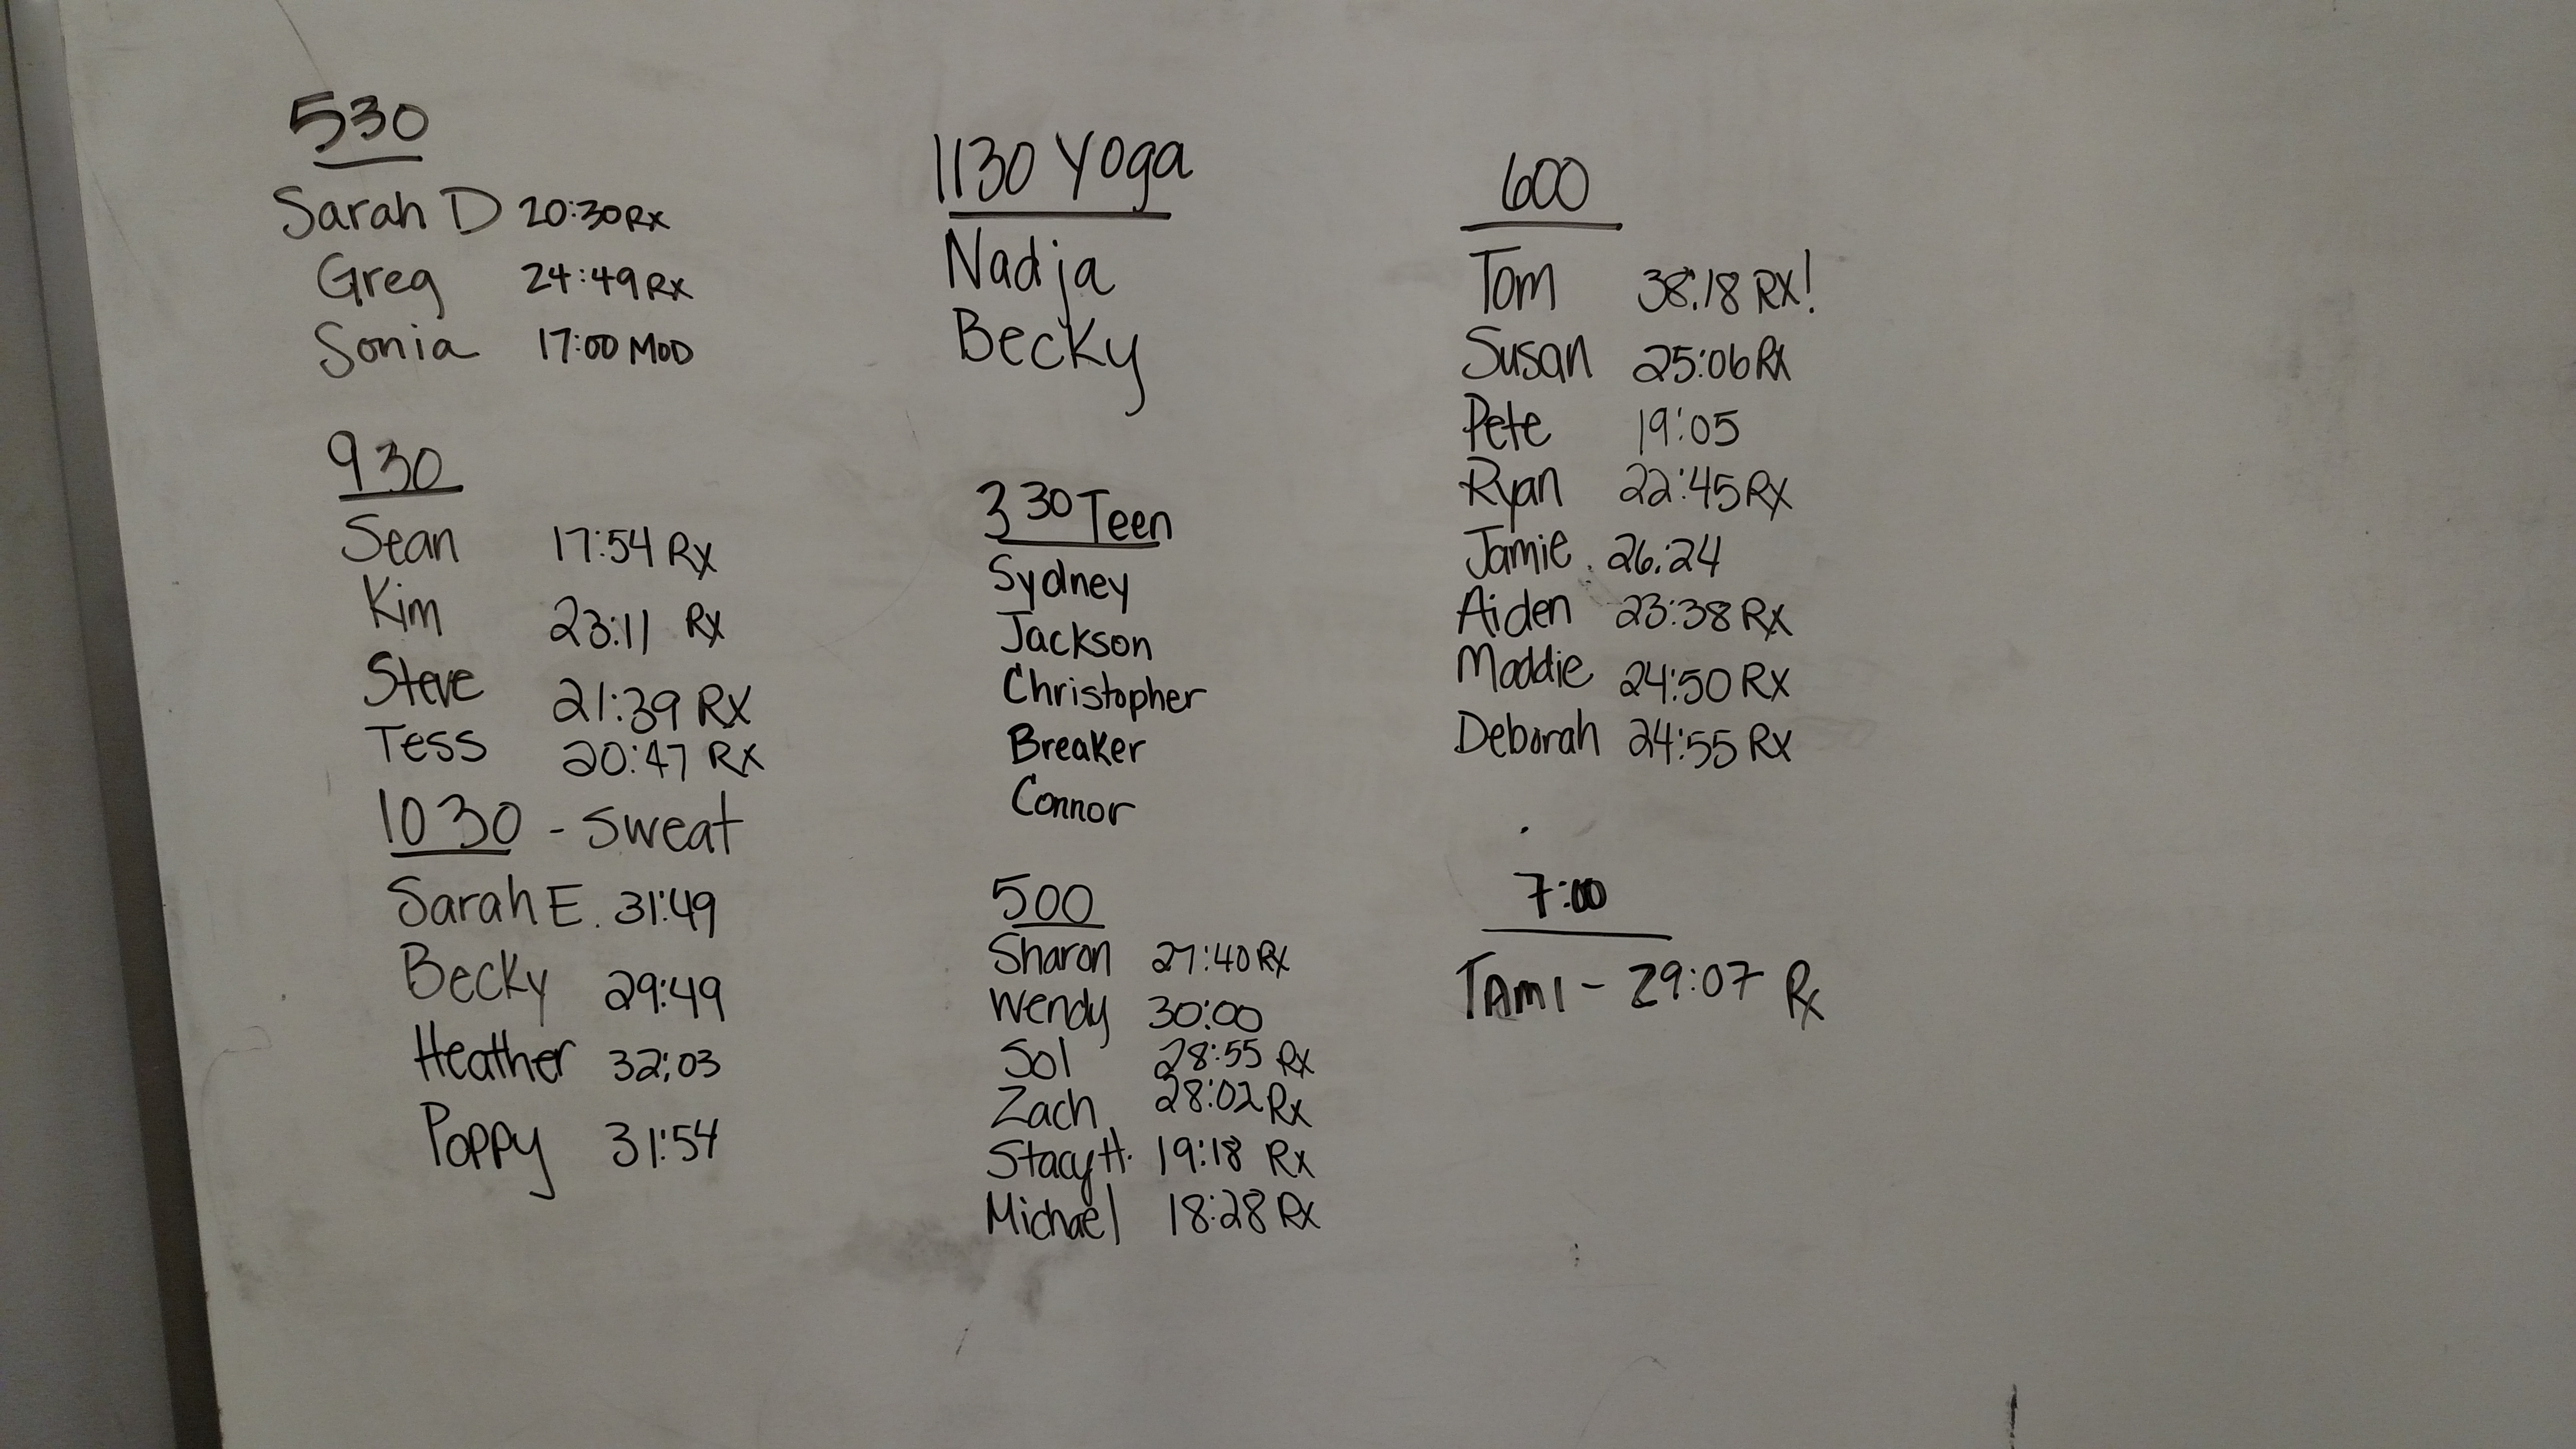 530
Sarah D 20:30 Rx
Greg 24:49 Rx
Sonia 17:00 MOD
930
Sean 17:54 Rx
Kim 23:11 Rx
Steve 21:39 RX
Tess 20:47 RX
1030 - Sweat
Sarah E. 31:49
Becky 29:49
Heather 32:03
Poppy 31:54
1130 Yoga
Nadja
Becky
330 Teen
Sydney
Jackson
Christopher
Breaker
Connor
500
Sharon 27:40 Rx
Wendy 30:00
Sol 28:55 Rx
Zach 28:02 Rx
Stacy H. 19:18 Rx
Michael 18:28 Rx
600
Tom 38:18 RX!
Susan 25:06 Rx
Pete 19:05
Ryan 22:45 RX
Jamie 26:24
Aiden 23:38 RX
Maddie 24:50 RX
Deborah 24:55 RX
7:00
TAMI - 29:07 Rx